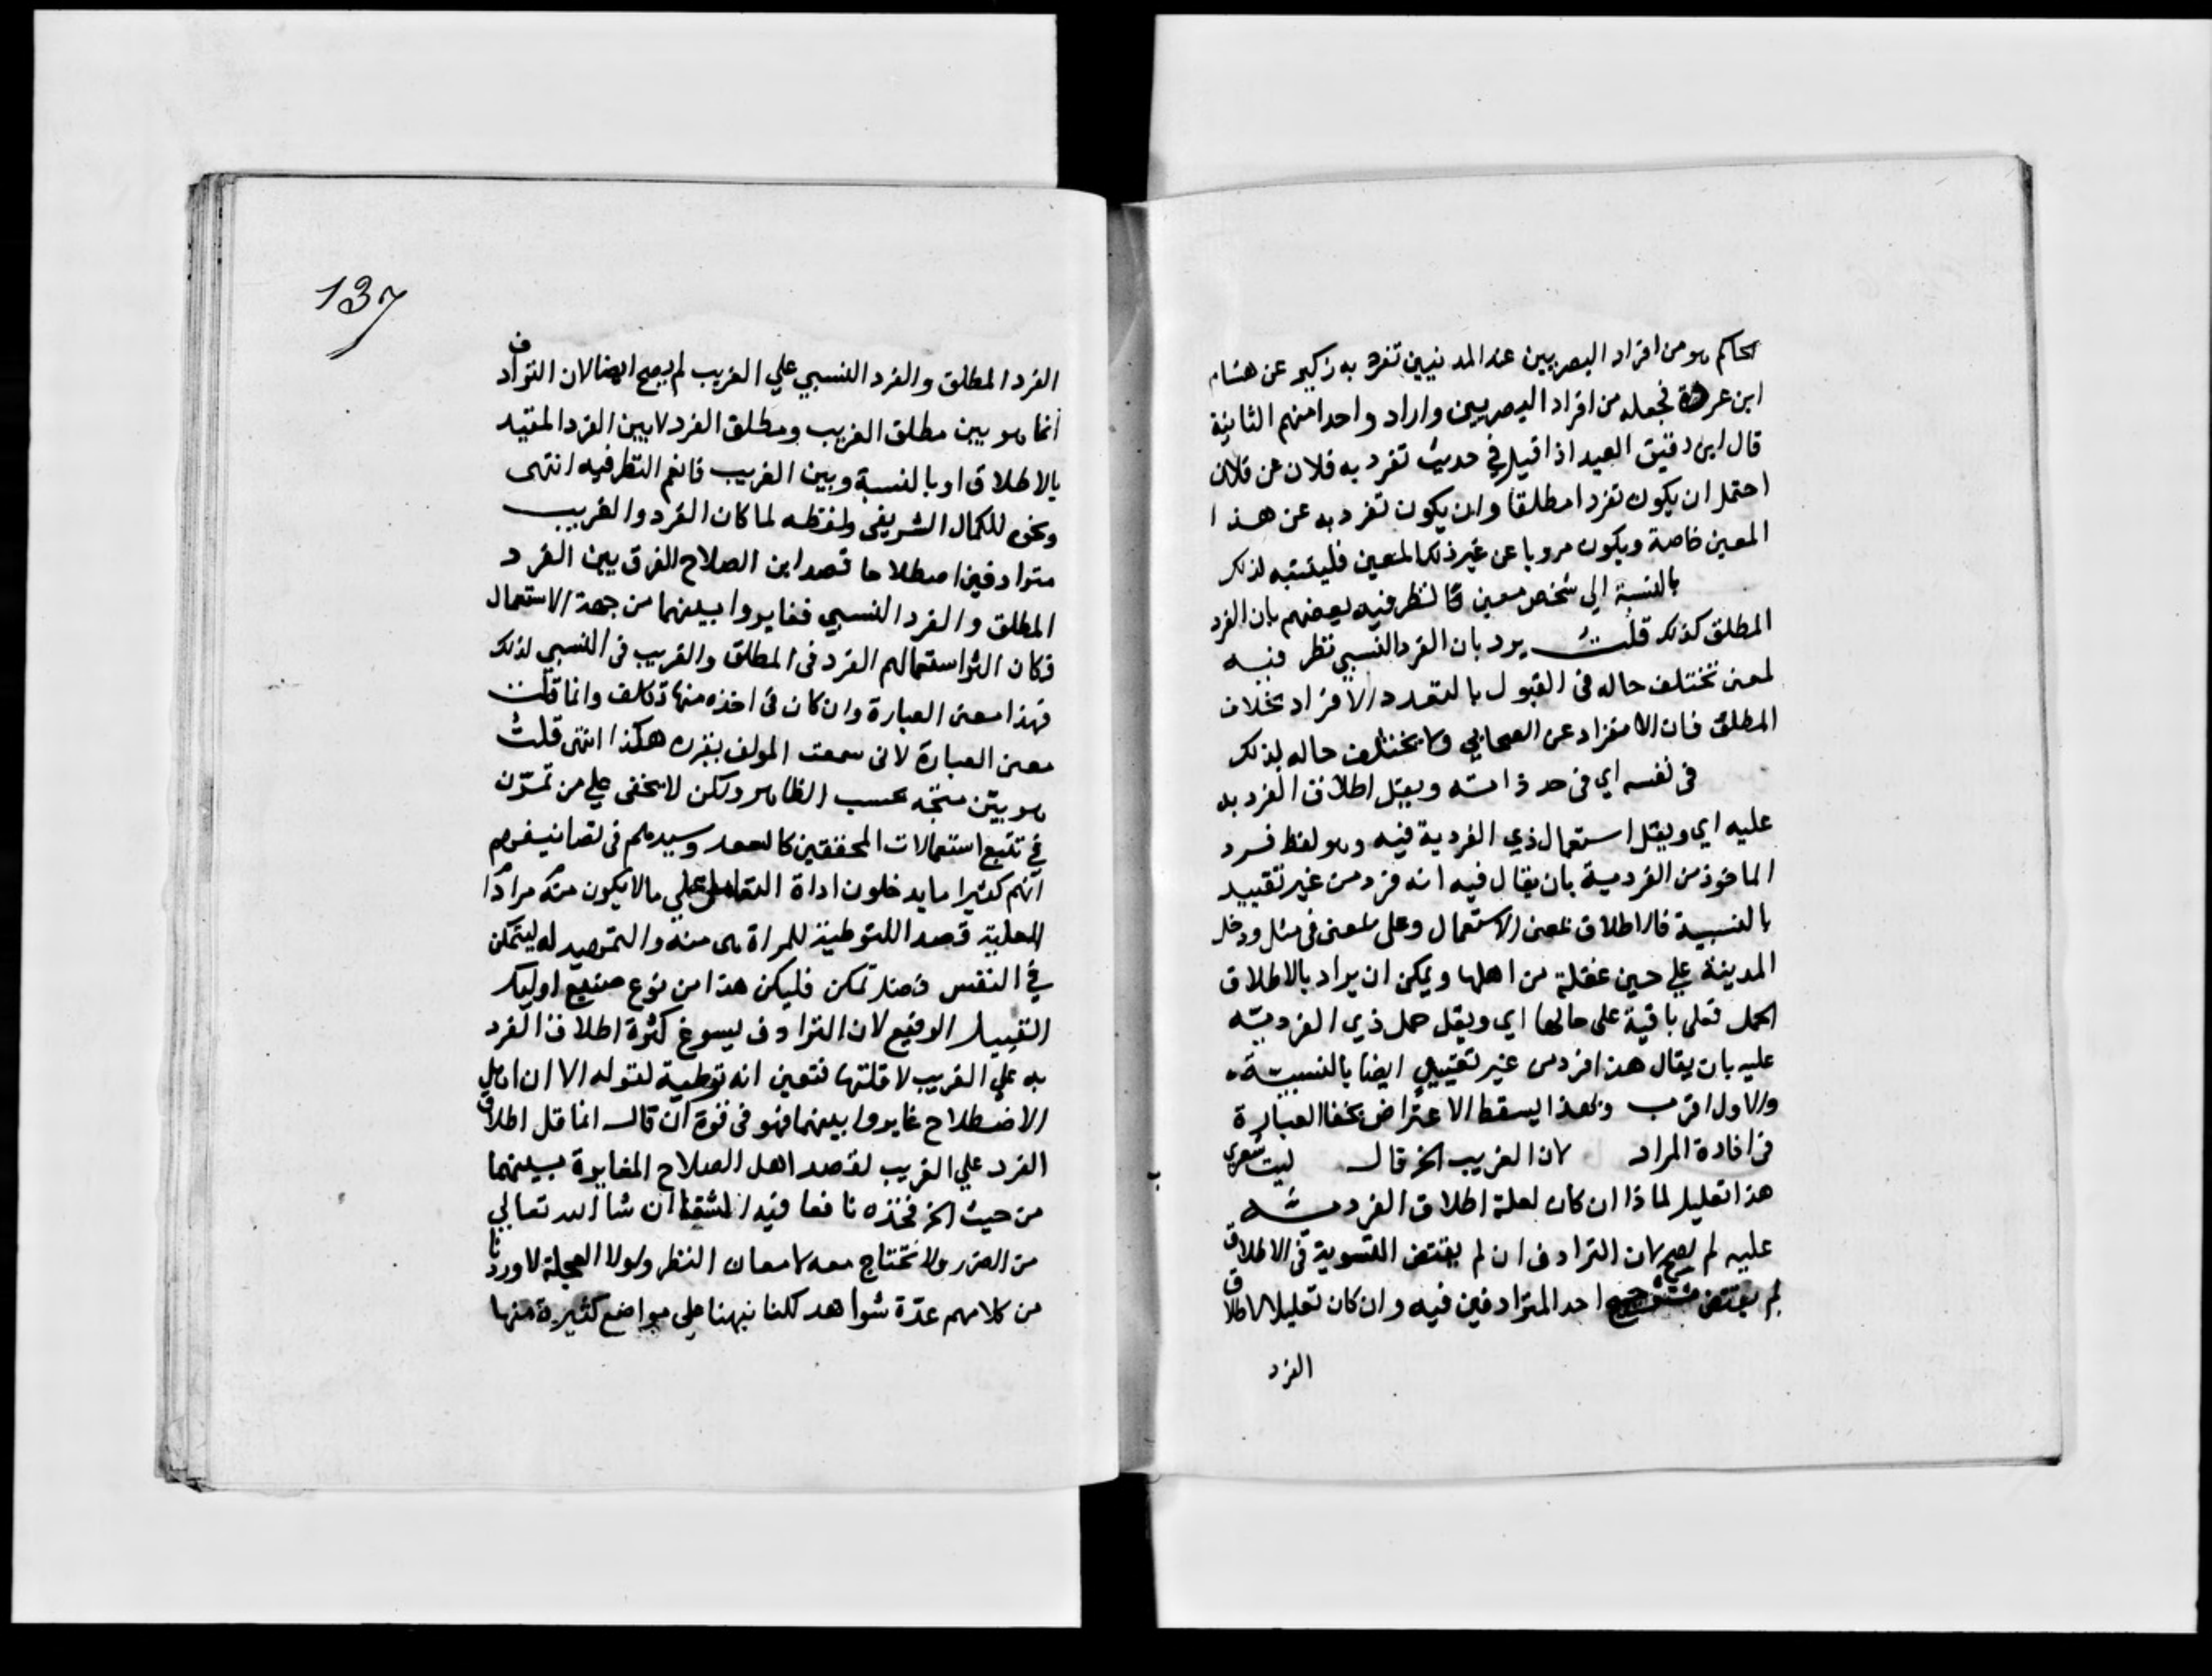 الحاكم هو من افراد البصريين عند المدنيين تفرد به زكير عن هشام
ابن عروة فجعله من افراد البصريين واراد واحدا منهم الثانية
قال ابن دقيق العيد اذا قيل في حديث تفرد به فلان عن فلان
احتمل ان يكون تفردا مطلقا وان يكون تفرد به عن هذا
المعين خاصة ويكون مرويا عن غير ذلك المعين فليتنبه لذلك
بالنسبة الي شخص معين نظر فيه بعضهم بان الفرد
المطلق كذلك قلت يرد بان الفرد النسبي نظر فيه
لمعنى تختلف حاله في القبول بالتعدد الافراد بخلاف
المطلق فان الانفراد عن الصحابي لا يختلف حاله بذلك
في نفسه اي في حد ذاته ويقل اطلاق الفرد به
عليه اي ويقل استعمال ذي الفردية فيه وهو لفظ فرد
الماخوذ من الفردية بان يقال فيه انه فرد من غير تقييد
بالنسبية فالاطلاق بمعنى الاستعمال وعلى بمعنى في مثل ودخل
المدينة علي حين غفلة من اهلها ويمكن ان يراد بالاطلاق
الحمل فعلى باقية على حالها اي ويقل حمل ذي الفردية
عليه بان يقال هذا فرد من غير تقييد ايضا بالنسبية
والاول اقرب وبهذا يسقط الاعتراض بخفا العبارة
في افادة المراد لان الغريب الخ قال ليت شعري
هذا تعليل لما ذا ان كان لعلة اطلاق الفردية
عليه لم يصح لان الترادف ان لم يقتض التسوية في الاطلاق
لم يقتض احد المترادفين فيه وان كان تعليلا لاطلاق
الفرد
137
الفرد المطلق والفرد النسبي علي الغريب لم يصح ايضا لان الترادف
انما هو بين مطلق الغريب ومطلق الفرد لا بين الفرد المقيد
بالاطلاق او بالنسبة وبين الغريب فانعم النظر فيه انتهى
ونحوه للكمال الشريفي ولفظه لما كان الفرد والغريب
مترادفين اصطلاحا قصد ابن الصلاح الفرق بين الفرد
المطلق والفرد النسبي فغايروا بينهما من جهة الاستعمال
فكان اكثر استعمالهم الفرد في المطلق والغريب في النسبي لذلك
فهذا معنى العبارة وان كان في اخذه منها تكلف وانما قلت
معنى العبارة لاني سمعت المولف يقرره هكذا انتهى قلت
هو بيّن متجه بحسب الظاهر ولكن لا يخفى علي من تمرّن
في تتبع استعمالات المحققين كالسعد وسيدهم في تصانيفهم
انهم كثيرا ما يدخلون اداة التعليل علي ما لا يكون منه مرادًا
العلية قصدا للتوطية للمراد منه والتمهيد له ليتمكن
في النفس فضل تمكن فليكن هذا من نوع صنيع اوليك
القبيل الرفيع لان الترادف ليسوغ كثرة اطلاق الفرد
به علي الغريب لا قلتها فتعين انه توطية لقوله الا ان اهل
الاصطلاح غايروا بينهما فهو في قوة ان قال انما قل اطلاق
الفرد علي الغريب لقصد اهل الصلاح المغايرة بينهما
من حيث الخ فخذه نافعا فيه الشفا ان شا الله تعالي
من الضرر ولا تحتاج معه لامعان النظر ولولا العجلة لاوردنا
من كلامهم عدّة شواهد كلنا نبهنا علي مواضع كثيرة منها